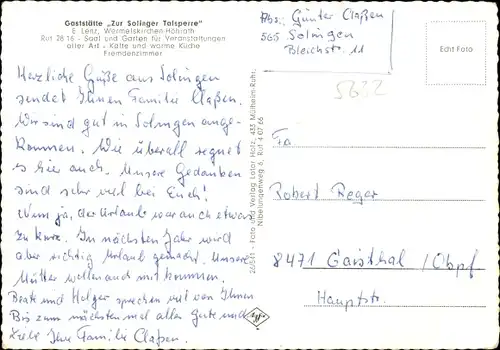 Gaststätte „Zur Solinger Talsperre"
E. Lenz, Wermelskirchen-Höhrath
Ruf 28 16 - Saal und Garten für Veranstaltungen
aller Art - Kalte und warme Küche
Fremdenzimmer
Herzliche Grüße aus Solingen
sendet Ihnen Familie Claßen.
Wir sind gut in Solingen ange-
kommen. Wie überall regnet
es hier auch. Unsere Gedanken
sind sehr viel bei Euch!
Wenn ja, der Urlaub war auch etwas
zu kurz. Im nächsten Jahr wird
aber richtig Urlaub gemacht. Unsere
Mütter wollen auch mitkommen.
Beate und Holger sprechen viel von Ihnen
Bis zum nächsten mal alles Gute und
Liebe Ihre Familie Claßen.
26641 - Foto und Verlag Lotar Holz, 433 Mülheim-Ruhr,
Nibelungenweg 6, Ruf 4 07 66
Abs: Günter Claßen
565 Solingen
Bleichstr. 11
Echt Foto
5632
Fa
Robert Reger
8471 Gaisthal /Obpf.
Hauptstr.